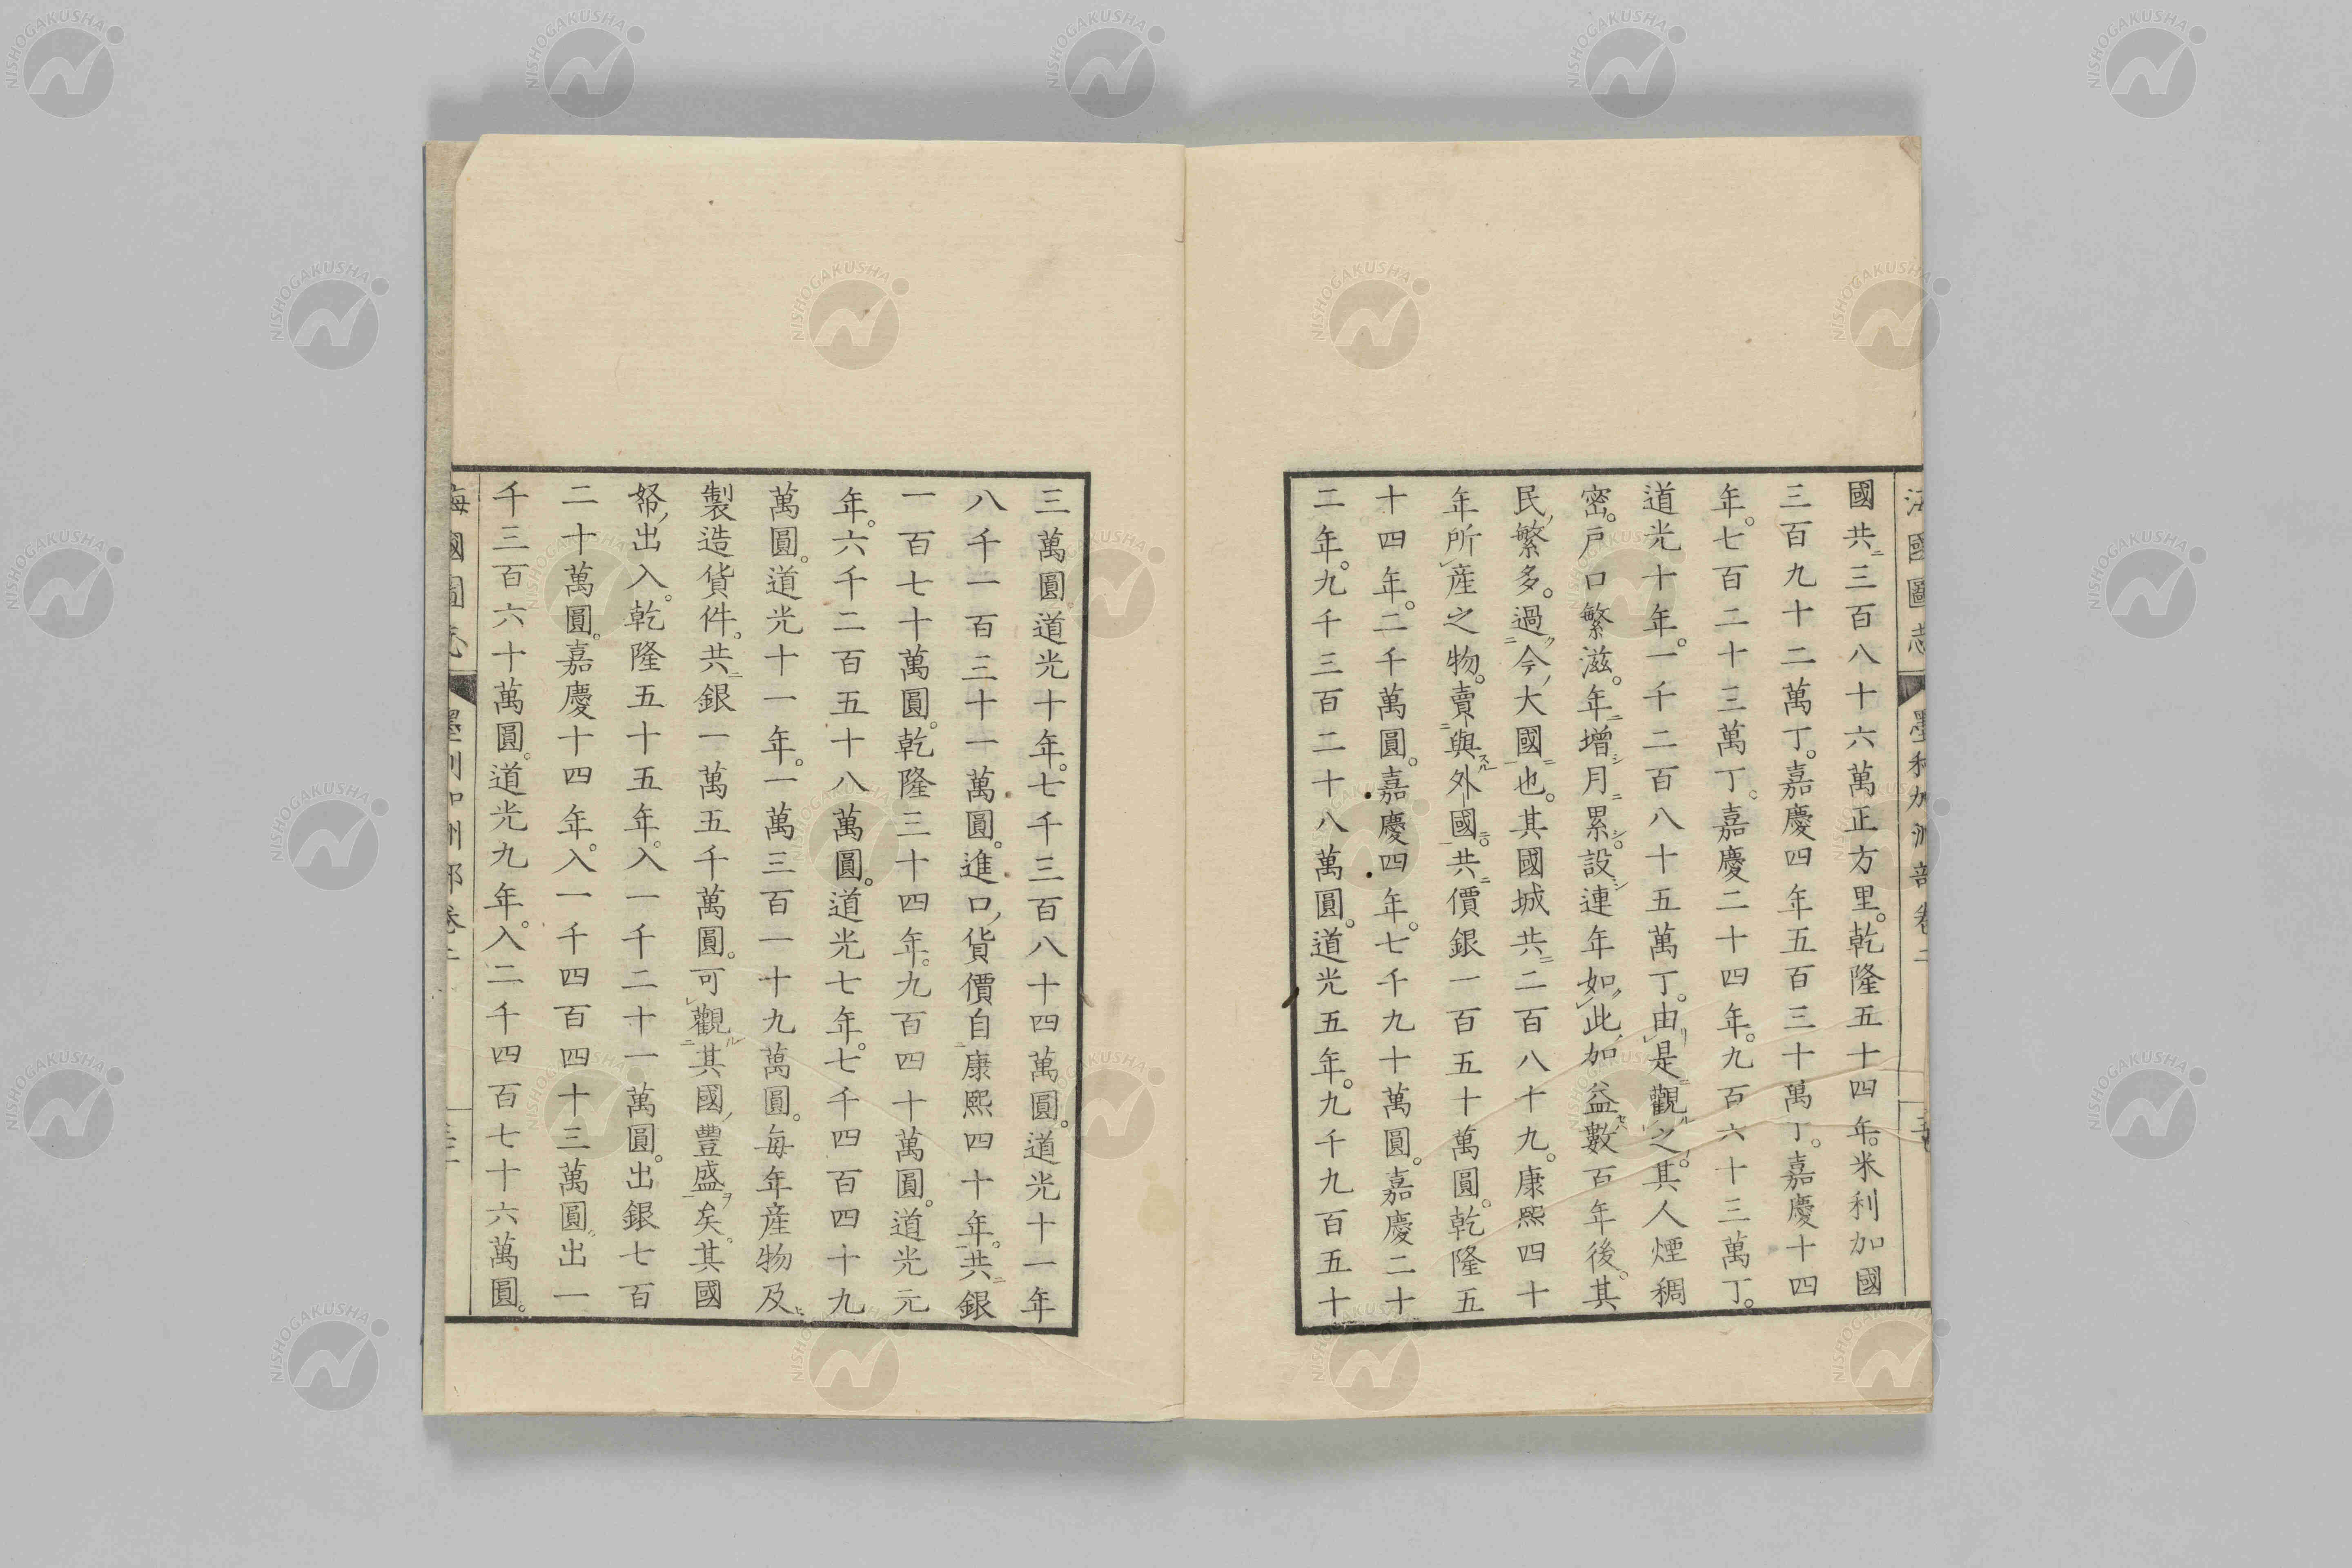 國共三百八十六萬正方里。乾隆五十四年。米利加國
三百九十二萬丁。嘉慶四年五百三十萬丁。嘉慶十四
年。七百二十三萬丁。嘉慶二十四年。九百六十三萬丁。
道光十年。一千二百八十五萬丁。由是觀之。其人煙稠
密。戶口繁滋。年增月累。設連年如此、加益數百年後。其
民繁多。過今大國也。其國城共二百八十九。康熙四十
年所產之物。賣與外國。共價銀一百五十萬圓。乾隆五
十四年。二千萬圓。嘉慶四年。七千九十萬圓。嘉慶二十
二年。九千三百二十八萬圓。道光五年。九千九百五十
三萬圓。道光十年。七千三百八十四萬圓。道光十一年
八千一百三十一萬圓。進口貨價自康熙四十年。共銀
一百七十萬圓。乾隆三十四年。九百四十萬圓。道光元
年。六千二百五十八萬圓。道光七年。七千四百四十九
萬圓。道光十一年。一萬三百一十九萬圓。每年產物及
製造貨件。共銀一萬五千萬圓。可觀其國豐盛矣。其國
帑出入。乾隆五十五年。入一千二十一萬圓。出銀七百
二十萬圓。嘉慶十四年。入一千四百四十三萬圓。出一
千三百六十萬圓。道光九年。入二千四百七十六萬圓。
海國圖志 墨利加洲部卷二
NISHOGAKUSHA